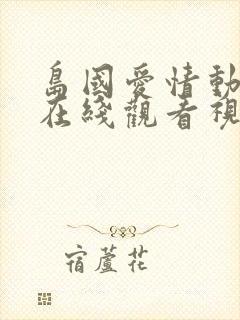 島國愛情動
在綫觀看視
宿蘆花